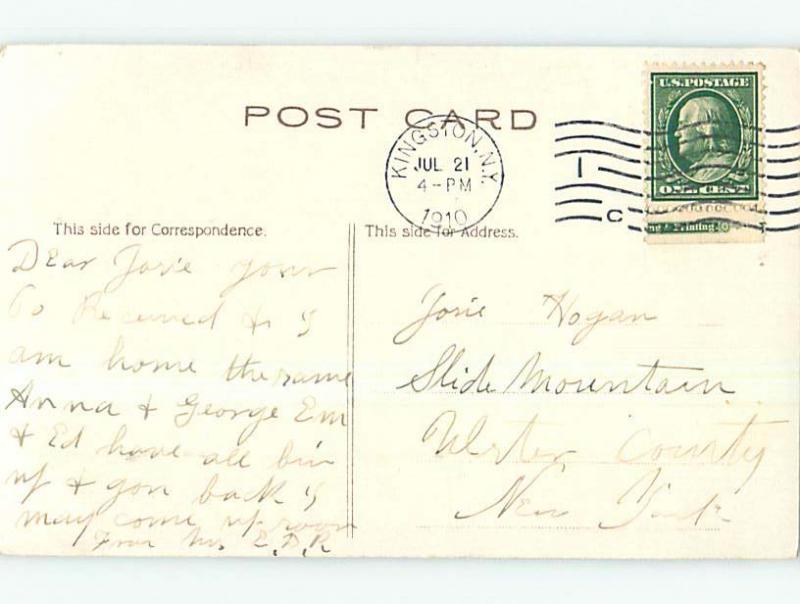 POST CARD
KINGSTON, N.Y.
JUL 21
4-PM
1910
1
C
U.S. POSTAGE
ONE CENT
Printing
This side for Correspondence.
This side for Address.
Dear Josie your
Received & I
am home the same
Anna & George Em
& Ed have all bin
up & gon back I
may come up soon
From Mrs. E.D.R
Josie Hogan
Slide Mountain
Ulster County
New York